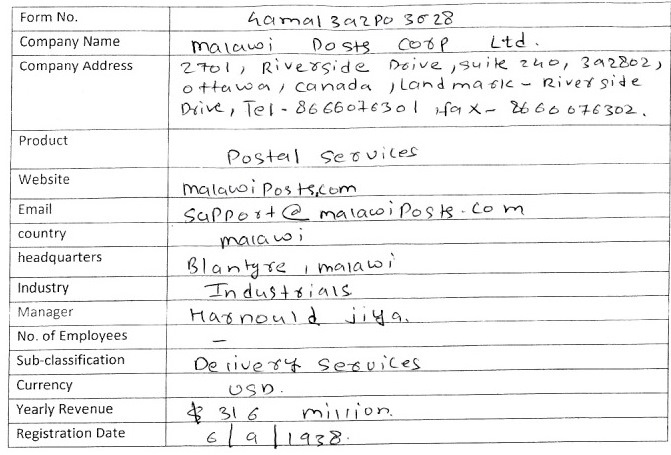 Form No. hamal3azpo3628
Company Name Malawi Posts Corp Ltd.
Company Address 2701, Riverside Drive, suite 240, 392802,
ottawa, Canada, Landmark - Riverside
Drive, Tel - 8666076301, fax - 8666076302.
Product Postal Services
Website malawiPosts.com
Email Support@malawiPosts.com
country malawi
headquarters Blantyre, malawi
Industry Industrials
Manager Harnould jiya.
No. of Employees –
Sub-classification Delivery Services
Currency USD.
Yearly Revenue $ 316 million.
Registration Date 6/9/1938.